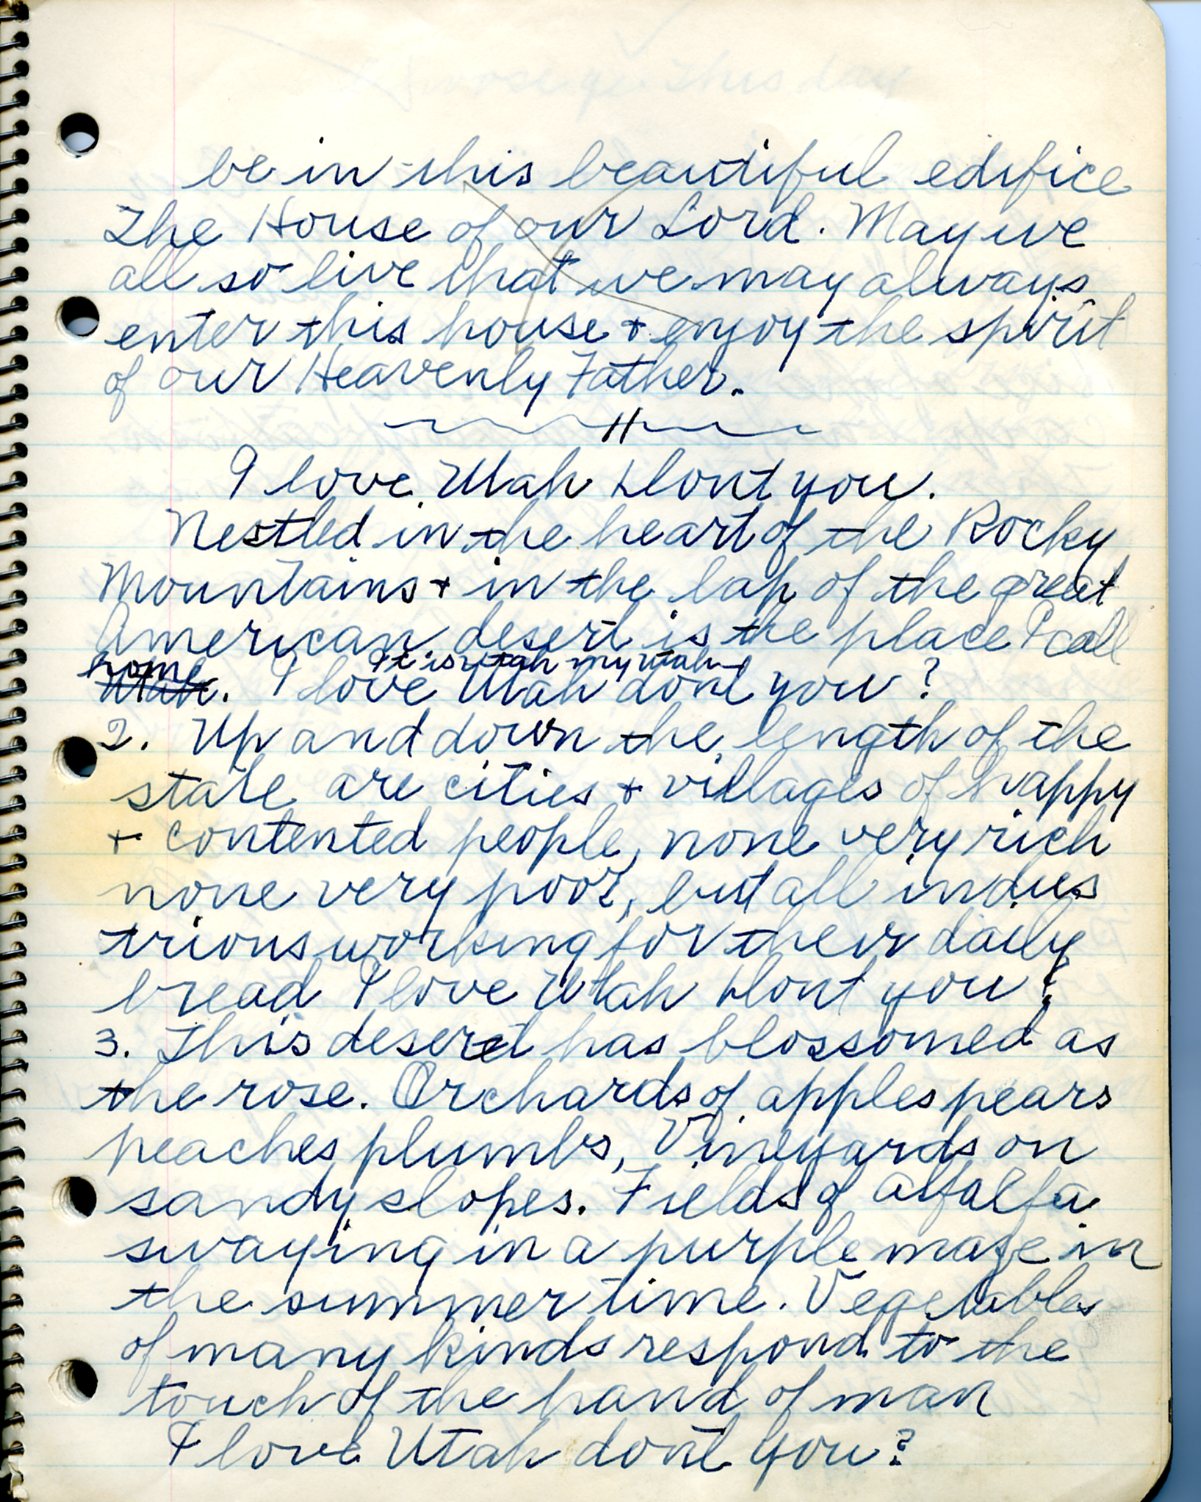 be in this beautiful edifice
The House of our Lord. May we
all so live that we may always
enter this house + enjoy the spirit
of our Heavenly Father.
I love Utah Dont you.
Nestled in the heart of the Rocky
Mountains + in the lap of the great
American desert is the place I call
home it is utah my utah
Utah. I love Utah dont you?
2. Up and down the length of the
state are cities + villages of happy
+ contented people, none very rich
none very poor, but all indus
trious working for their daily
bread I love Utah Dont you?
3. This desert has blossomed as
the rose. Orchards of apples pears
peaches plumbs, Vineyards on
sandy slopes. Fields of alfalfa
swaying in a purple maze in
the summer time. Vegetables
of many kinds respond to the
touch of the hand of man
I love Utah dont you?